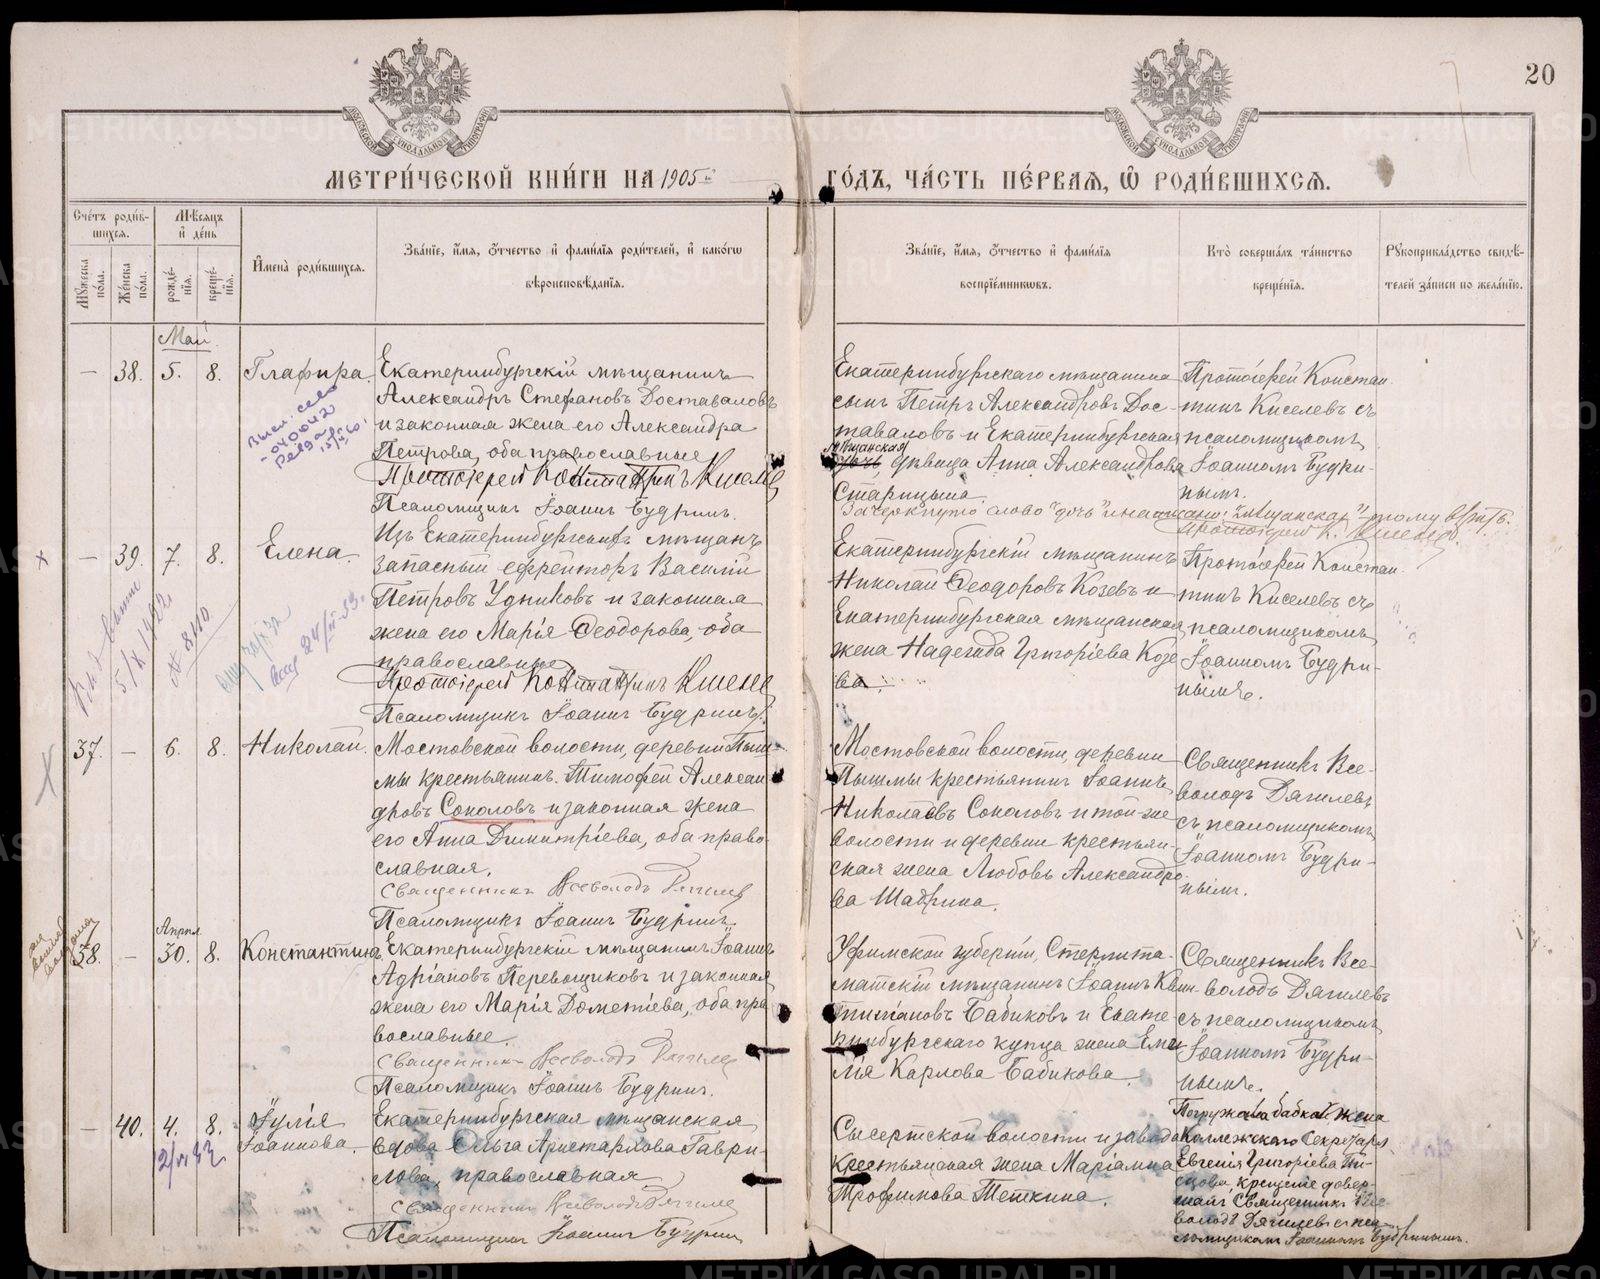 20
МЕТРИ́ЧЕСКОЙ КНИ́ГИ НА 1905 й
ГО́ДЪ, ЧА́СТЬ ПЕ́РВАЯ, Ѡ РОДИ́ВШИХСЯ.
Счéтъ роди́в-
шихся.
Мѣ́сяцъ
и де́нь
Мꙋжеска по́ла.
Же́нска по́ла.
рожде́-
нїя.
креще́-
нїя.
И҆мена̀ роди́вшихся.
Зва́нїе, и҆́мя, ѻ҆́тчество и҆ фами́лїя роди́телей, и҆ како́гѡ
вѣроисповѣ́данїя.
Зва́нїе, и҆́мя, ѻ҆́тчество и҆ фами́лїя
воспрїе́мниковъ.
Кто̀ соверша́лъ та́инство
креще́нїя.
Рꙋкоприкла́дство свидѣ́-
телей за́писи по жела́нїю.
Май
— 38. 5. 8. Глафира.
Екатеринбургскій мѣщанинъ
Александръ Стефановъ Доставаловъ
и законная жена его Александра
Петрова, оба православные
Протоіерей Константинъ Киселевъ
Псаломщикъ Іоаннъ Будринъ.
Екатеринбургскаго мѣщанина
сынъ Петръ Александровъ Дос-
таваловъ и Екатеринбургская
мѣщанская
дочь, дѣвица Анна Александрова
Старицына.
Протоіерей Констан-
тинъ Киселевъ съ
псаломщикомъ
Іоанномъ Будри-
нымъ.
Зачеркнуто слово "дочь" и написано: "мѣщанская" тому вѣрить.
Протоіерей К. Киселевъ.
— 39. 7. 8. Елена.
Изъ Екатеринбургскихъ мѣщанъ
запасный ефрейторъ Василій
Петровъ Удниковъ и законная
жена его Марія Ѳеодорова, оба
православные
Протоіерей Константинъ Киселевъ
Псаломщикъ Іоаннъ Будринъ.
Екатеринбургскій мѣщанинъ
Николай Ѳеодоровъ Козевъ и
Екатеринбургская мѣщанская
жена Надежда Григоріева Козе
ва.
Протоіерей Констан-
тинъ Киселевъ съ
псаломщикомъ
Іоанномъ Будри-
нымъ.
37. — 6. 8. Николай.
Мостовской волости, деревни Пыш-
мы крестьянинъ Тимофей Алексан
дровъ Соколовъ и законная жена
его Анна Димитріева, оба право-
славная.
Священникъ Всеволодъ Дягилевъ
Псаломщикъ Іоаннъ Будринъ.
Мостовской волости, деревни
Пышмы крестьянинъ Іоаннъ
Николаевъ Соколовъ и той-же
волости и деревни крестьян-
ская жена Любовь Александро
ва Шадрина.
Священникъ Все-
володъ Дягилевъ
съ псаломщикомъ
Іоанномъ Будри-
нымъ.
Апрѣл.
38. — 30. 8. Константинъ.
Екатеринбургскій мѣщанинъ Іоаннъ
Адріановъ Перевощиковъ и законная
жена его Марія Дометіева, оба пра
вославные.
Священникъ Всеволодъ Дягилевъ
Псаломщикъ Іоаннъ Будринъ.
Уфимской губерніи, Стерлита-
матскій мѣщанинъ Іоаннъ Квин-
тиліановъ Бабиковъ и Екате-
ринбургскаго купца жена Еми
лія Карлова Бабикова.
Священникъ Все-
володъ Дягилевъ
съ псаломщикомъ
Іоанномъ Будри-
нымъ.
— 40. 4. 8. Іулія
Іоаннова.
Екатеринбургская мѣщанская
вдова Ольга Аристархова Гаври-
лова, православная
Священникъ Всеволодъ Дягилевъ
Псаломщикъ Іоаннъ Будринъ
Сысертской волости и завода
крестьянская жена Маріамна
Трофимова Теткина.
Погружала бабка жена
Коллежскаго Секретаря
Евгенія Григоріева
крещеніе довер-
шалъ Священникъ Все
володъ Дягилевъ съ пса
ломщикомъ Іоанномъ Будринымъ.